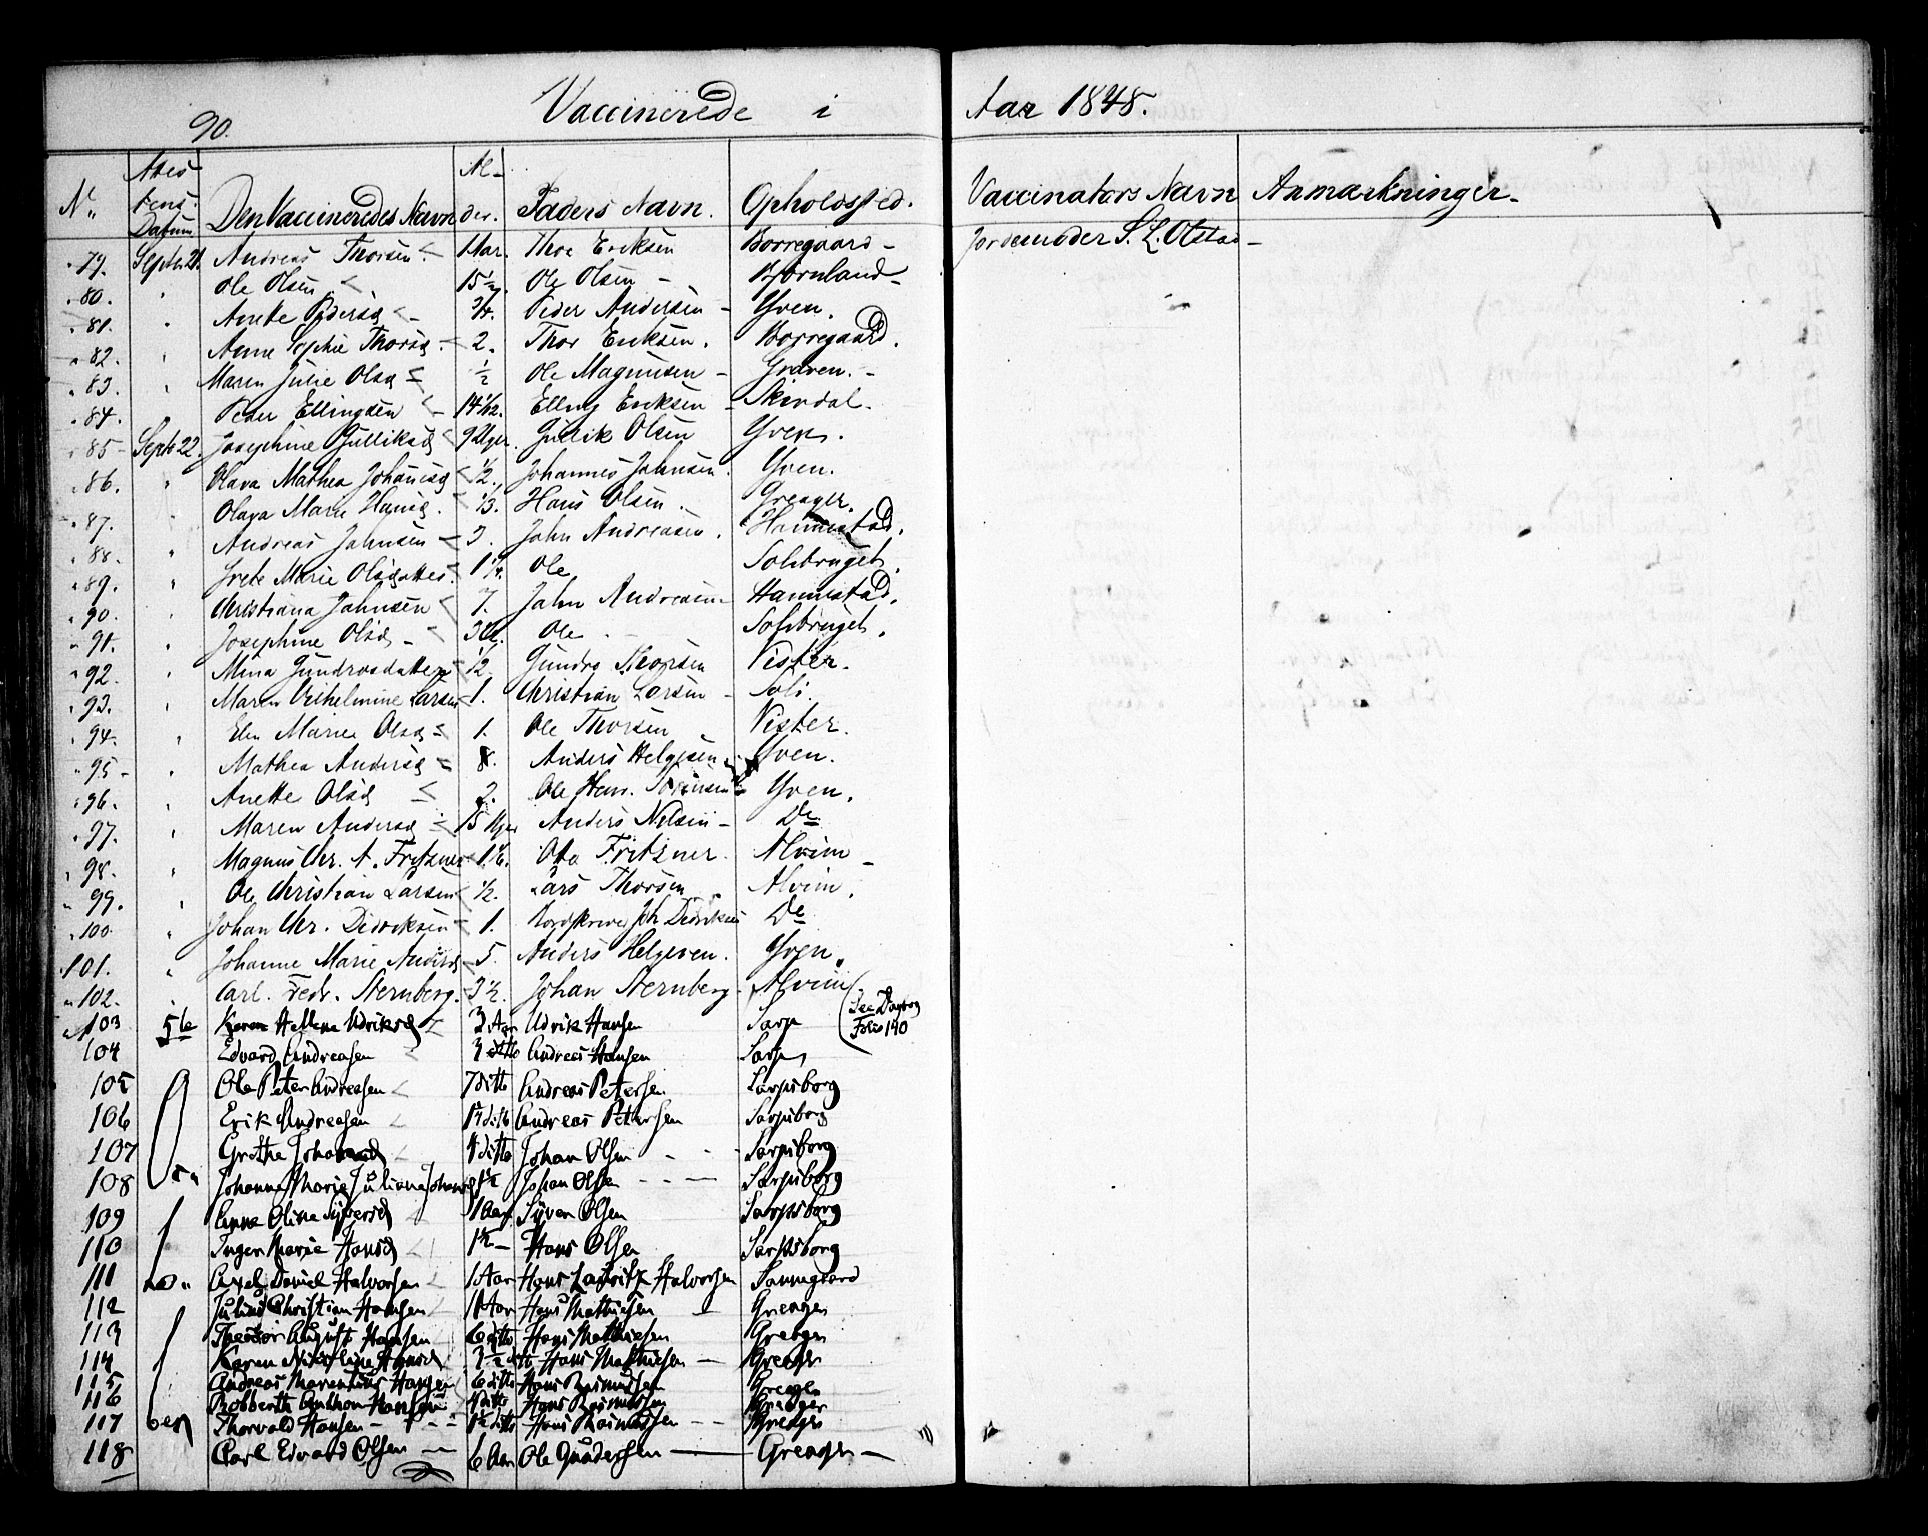 90.
Vaccinerede i Aar 1848.
N. Attestens Datum Den Vaccineredes Navn Alder. Faders Navn. Opholdsted. Vaccinators Navn Anmærkninger.
79. Septbr 21. Andreas Thorsen 1 Aar. Thor Ericksen Borregaard Jordemoder S. L. Olstad
80. " Ole Olsen 15 1/2. Ole Olsen Bjørnland
81. " Anette Pedersd 3/4. Peder Andersen Yven.
82. " Anne Sophie Thorsd 2. Thor Ericksen. Borregaard.
83. " Maren Julie Olsd 1/2 Ole Magnusen Græven.
84. " Peder Ellingsen 14 1/12. Elling Ericksen Skindal.
85 Septb 22. Josephine Gulliksd 9 Uger. Gullik Olsen Yven.
86. " Olava Mathea Johansd 1/2. Johannes Johnsen. Yven.
87. " Olava Marie Hansd. 1/3. Hans Olsen. Greager.
88. " Andreas Johnsen 3. John Andreasen. Hannestad.
89. " Grete Marie Olsdatter. 1 1/4. Ole Solibruget.
90. " Christiana Johnsen 7. John Andreasen Hannestad.
91. " Josephine Olsd 3 Ole Solibruget.
92. " Mina Gundrosdatter 1/2. Gundro Thorsen Vister.
93. " Maren Vilhelmine Larsen 1. Christian Larsen Soli.
94. " Elen Marie Olsd 1. Ole Thorsen Vister.
95 " Mathea Andersd 8. Anders Helgesen Yven.
96. " Anette Olsd 2. Ole Hen. Sørensen Yven.
97. " Maren Andersd 15 Uger Anders Nilsen Do
98. " Magnus Chr. A. Fritzner 1 1/6. Otto Fritzner. Alvim
99. " Ole Christian Larsen 1/2. Lars Thorsen Alvim.
100. " Johan Chr. Didriksen 1. Joh Didriksen Do
101. " Johanne Marie Andersd 5. Anders Helgesen. Yven.
102. " Carl. Fedr. Sternberg. 3 1/2. Johan Sternberg. Alvim
103 Karen Hellene Udriksd 3 Aar Udrik Hansen Sarp (See Dagbog Folio 140
104 Edvard Andreasen 3 ditto Andreas Hansen Sarp
105 Ole Peter Andreasen 7 ditto Andreas Petersen Sarpsborg
106 Erik Andreasen ditto Andreas Petersen Sarpsborg
107 Grethe Johansd 4 ditto Johan Olsen Sarpsborg
108 Johanne Marie Juliane Johansd 1/2 Johan Olsen Sarpsborg
109 Anne Oline Syversd 1 Aar Syver Olsen Sarpsborg
110 Inger Marie Hansd 1 1/2 Hans Olsen Sarpsborg
111 Axel Daniel Halvorsen 1 Aar Hans Lauritz Halvorsen Sannegaard
112 Julius Christian Hansen Aar Hans Mathiesen Greager
113 Theodor August Hansen 6 ditto Hans Mathiesen Greager
114 Karen Nikoline Hansd 3 1/2 dito Hans Mathiesen Greager
115 Andreas Marentius Hansen 6 ditto Hans Rasmussen Greager
116 Robberth Anthon Hansen ditto Hans Rasmussen Greager
117 Thorvald Hansen 1 1/2 ditto Hans Rasmussen Greager
118 Carl Edvard Olsen 6 Aar Ole Gundersen Greager